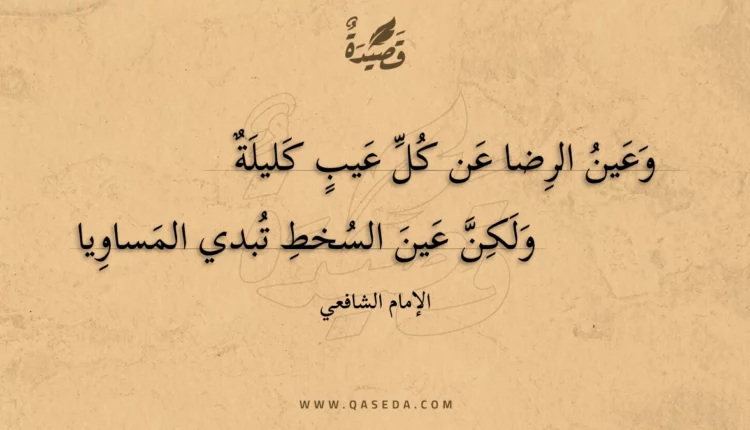 قَصِيدَةٌ
وَعَينُ الرِضا عَن كُلِّ عَيبٍ كَليلَةٌ
وَلَكِنَّ عَينَ السُخطِ تُبدي المَساوِيا
الإمام الشافعي
WWW.QASEDA.COM